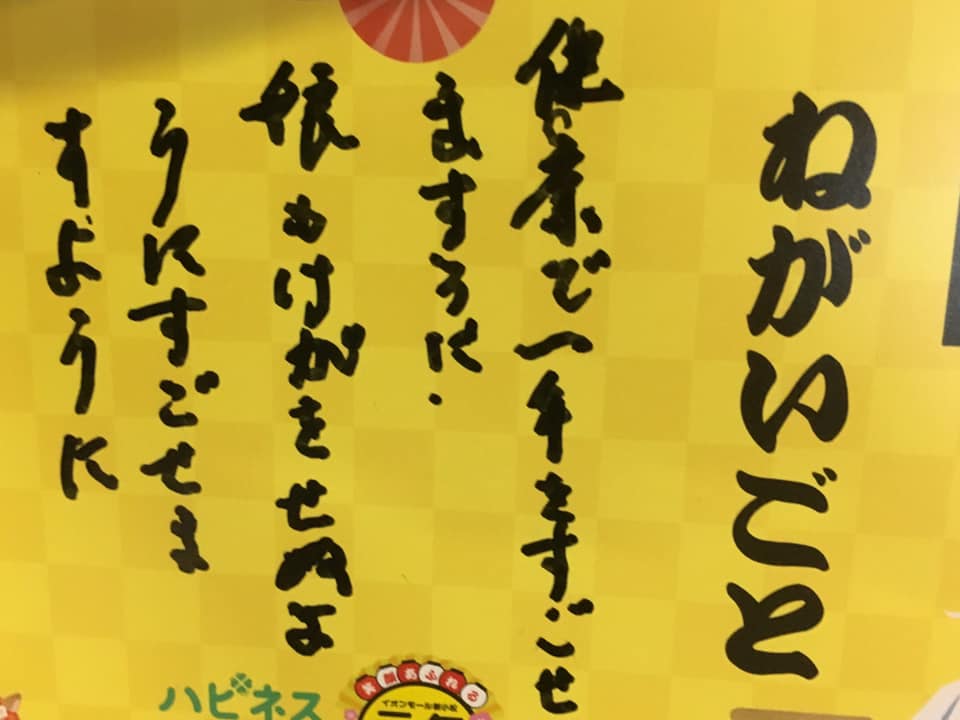 ねがいごと
健康で一年をすごせ
ますうに.
娘もけがをせぬよ
うにすごせま
すように
ハピネス
笑顔あふれる
イオンモール新小松